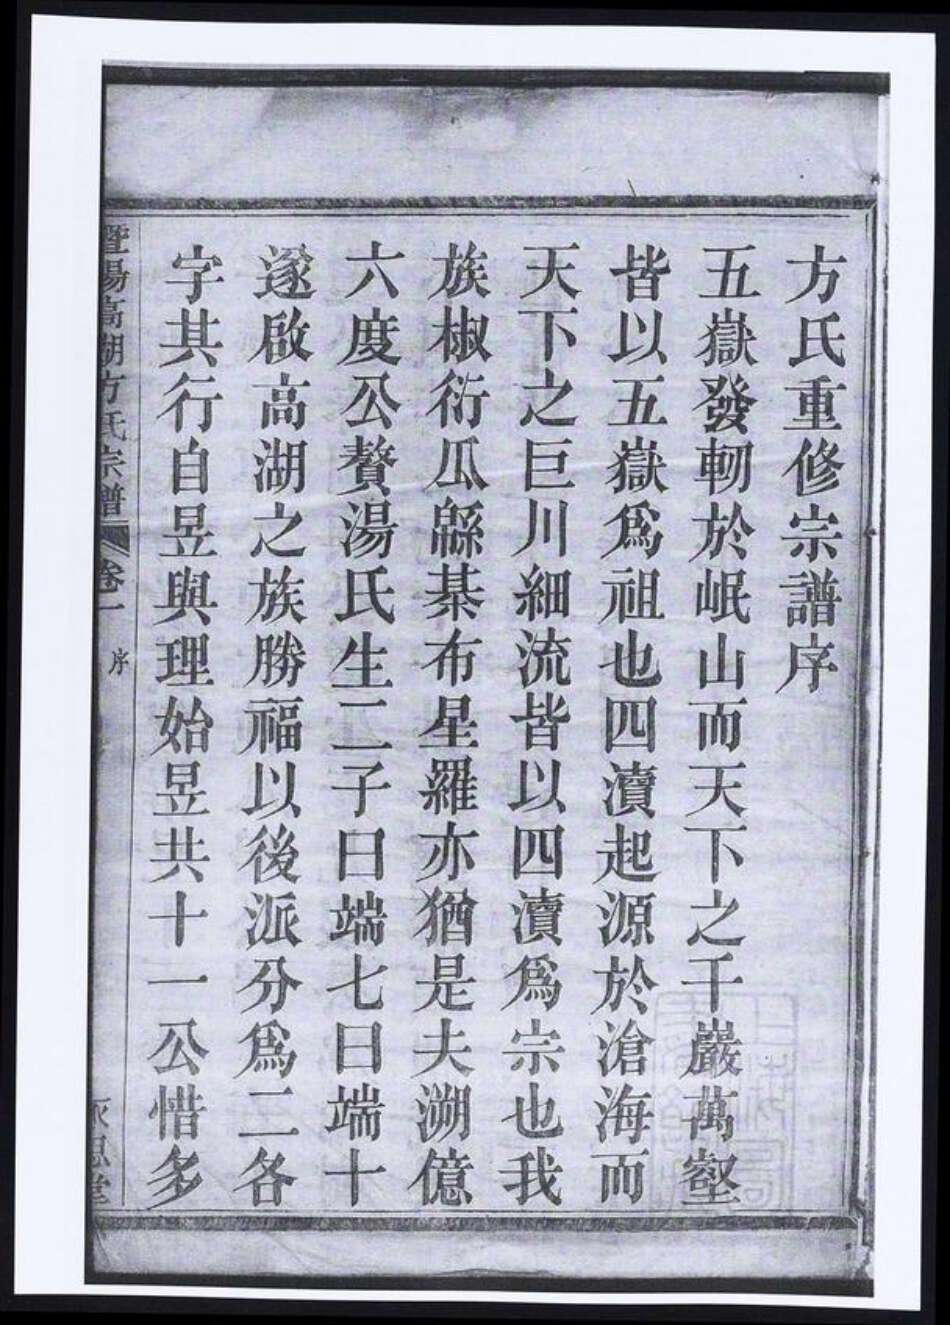 方氏重修宗譜序
五嶽發軔於岷山而天下之千巖萬壑
皆以五嶽爲祖也四瀆起源於滄海而
天下之巨川細流皆以四瀆爲宗也我
族椒衍瓜緜棊布星羅亦猶是夫溯億
六度公贅湯氏生二子曰端七曰端十
遂啟高湖之族勝福以後派分爲二各
字其行自昱與理始昱共十一公惜多
暨陽高湖方氏宗譜 卷一 序 永思堂